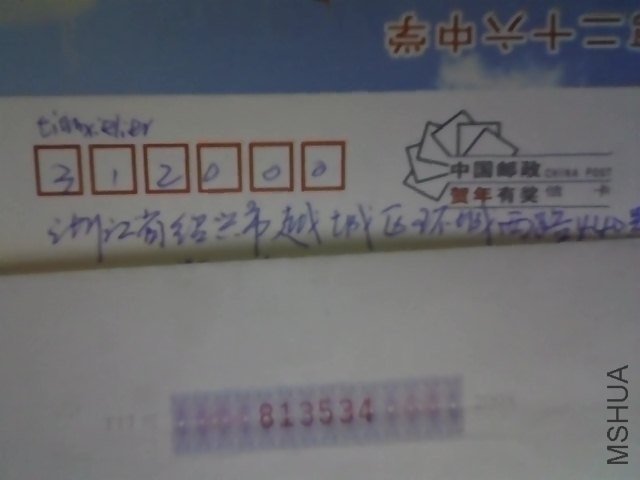 二十六中学
tianxielier
312000
中国邮政 CHINA POST
贺年有奖 信 卡
浙江省绍兴市越城区环城西路440号
813534
MSHUA